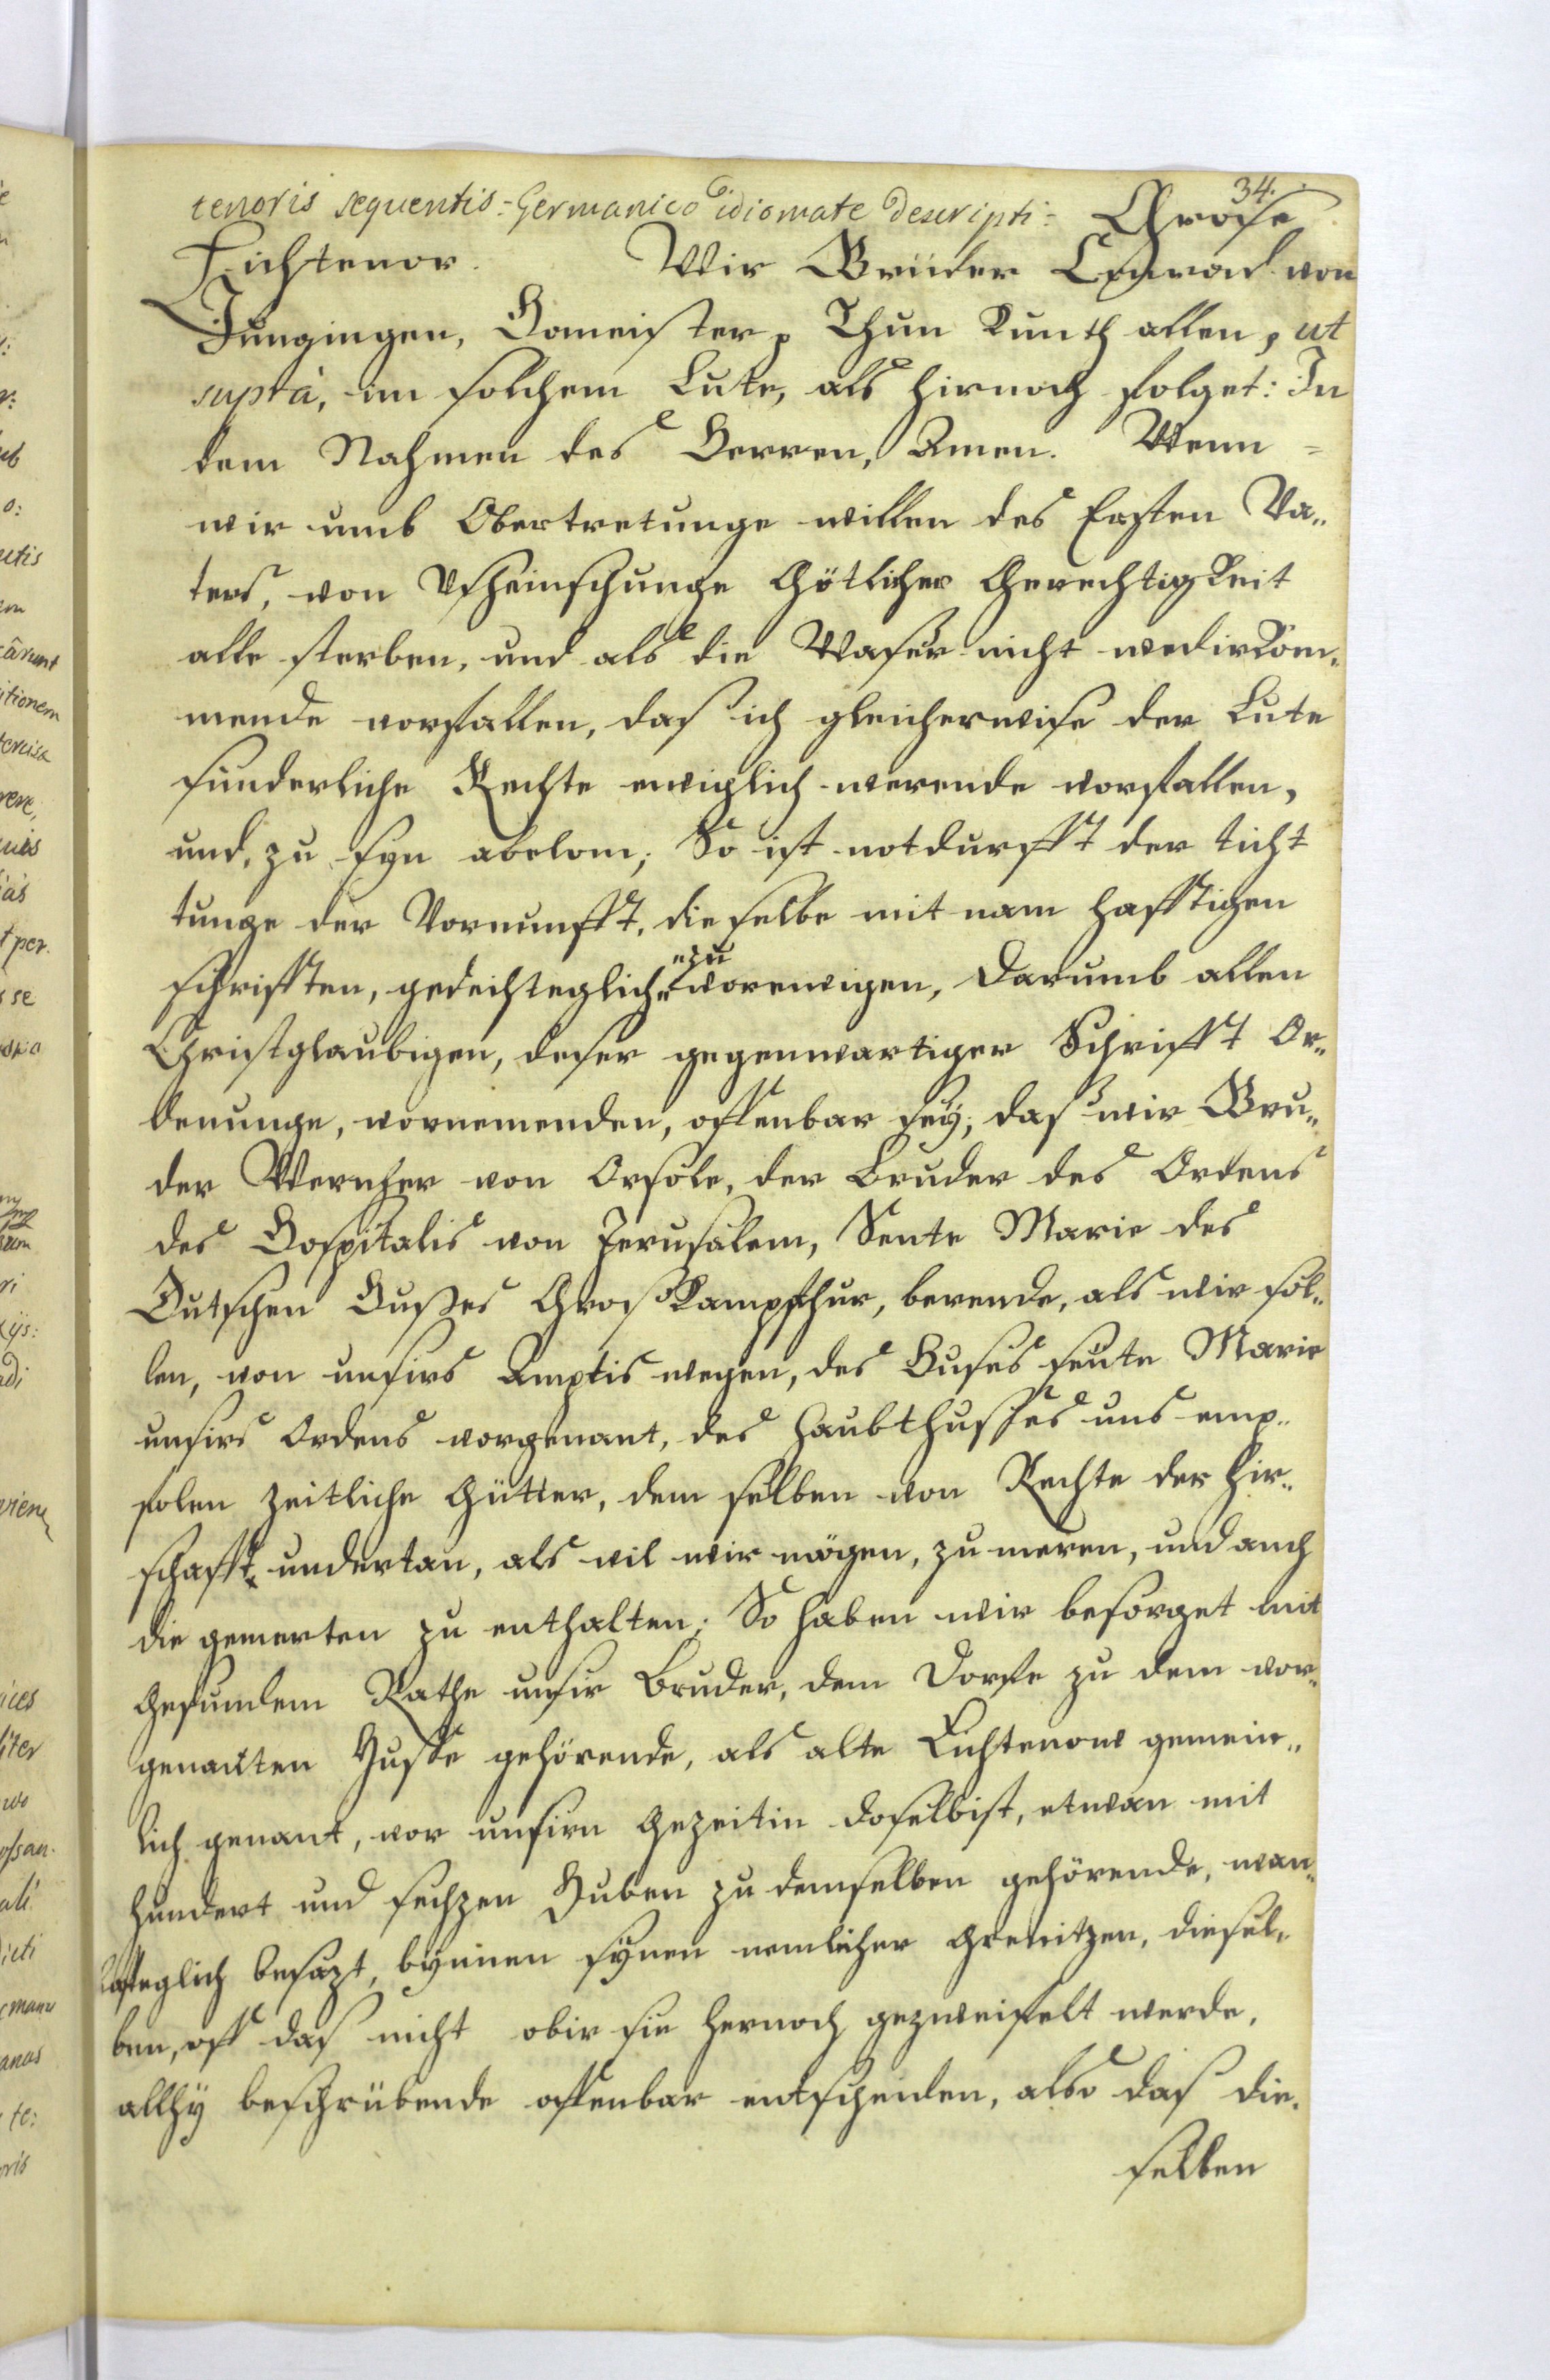 34.
tenoris sequentis: Germanico idiomate descripti: Große
Lichtenor. Wir Brüder Conrad von
Jungingen, Homeister, Thun Kunth allen, ut
supra, im solchem Lute, als hirnoch folget: In
dem Nahmen des Herren, Amen. Wenn
wir umb Obertretunge willen des Ersten Va„
ters, von Usheischunge Götlicher Gerechtigkeit
alle sterben, und als die Waser nicht wedirkom„
mende vorfallen, das ich gleicherwise der Lute
sunderliche Rechte ewiglich werende vorfallen,
und, zu syn abelom; So ist notdurfft der ticht
tunge der Vornunfft, dieselbe mit nam hafftigen
schrifften, gedechteglich zu vorewigen, Darumb allen
Christglaubigen, deser gegenwartiger Schrifft Or„
denunge, vornemenden, offenbar sey; das wir Bru„
der Wernher von Orsole, der Bruder des Ordens
des Hospitalis von Jerusalem, Sente Marie des
Dutschen Hußes Groskompthur, berende, als wir sol„
len, von unsirs Amptis wegen, des Huses sente Marie
unsirs Ordens vorgenant, des Haubthusses uns emp„
folen zeitliche Gütter, dem selben von Rechte der Hir„
schafft undertan, als vil wir mögen, zu meren, und auch
die gemerten zu enthalten; So haben wir besorget mit
Gesundem Rathe unsir Bruder, dem Dorffe zu dem vor„
genanten Husse gehörende, als alte Lichtenow gemein„
lich genant, vor unsirn Gezeitin doselbist, etwan mit
hundert und sechzen Huben zu demselben gehörende, man„
hafteglich besazt, bynnen synen nemlicher Grenitzen, diesel„
ben, off das nicht obir sie hernoch gezweifelt werde,
allhy beschrübende offenbar entscheiden, also das die„
selben